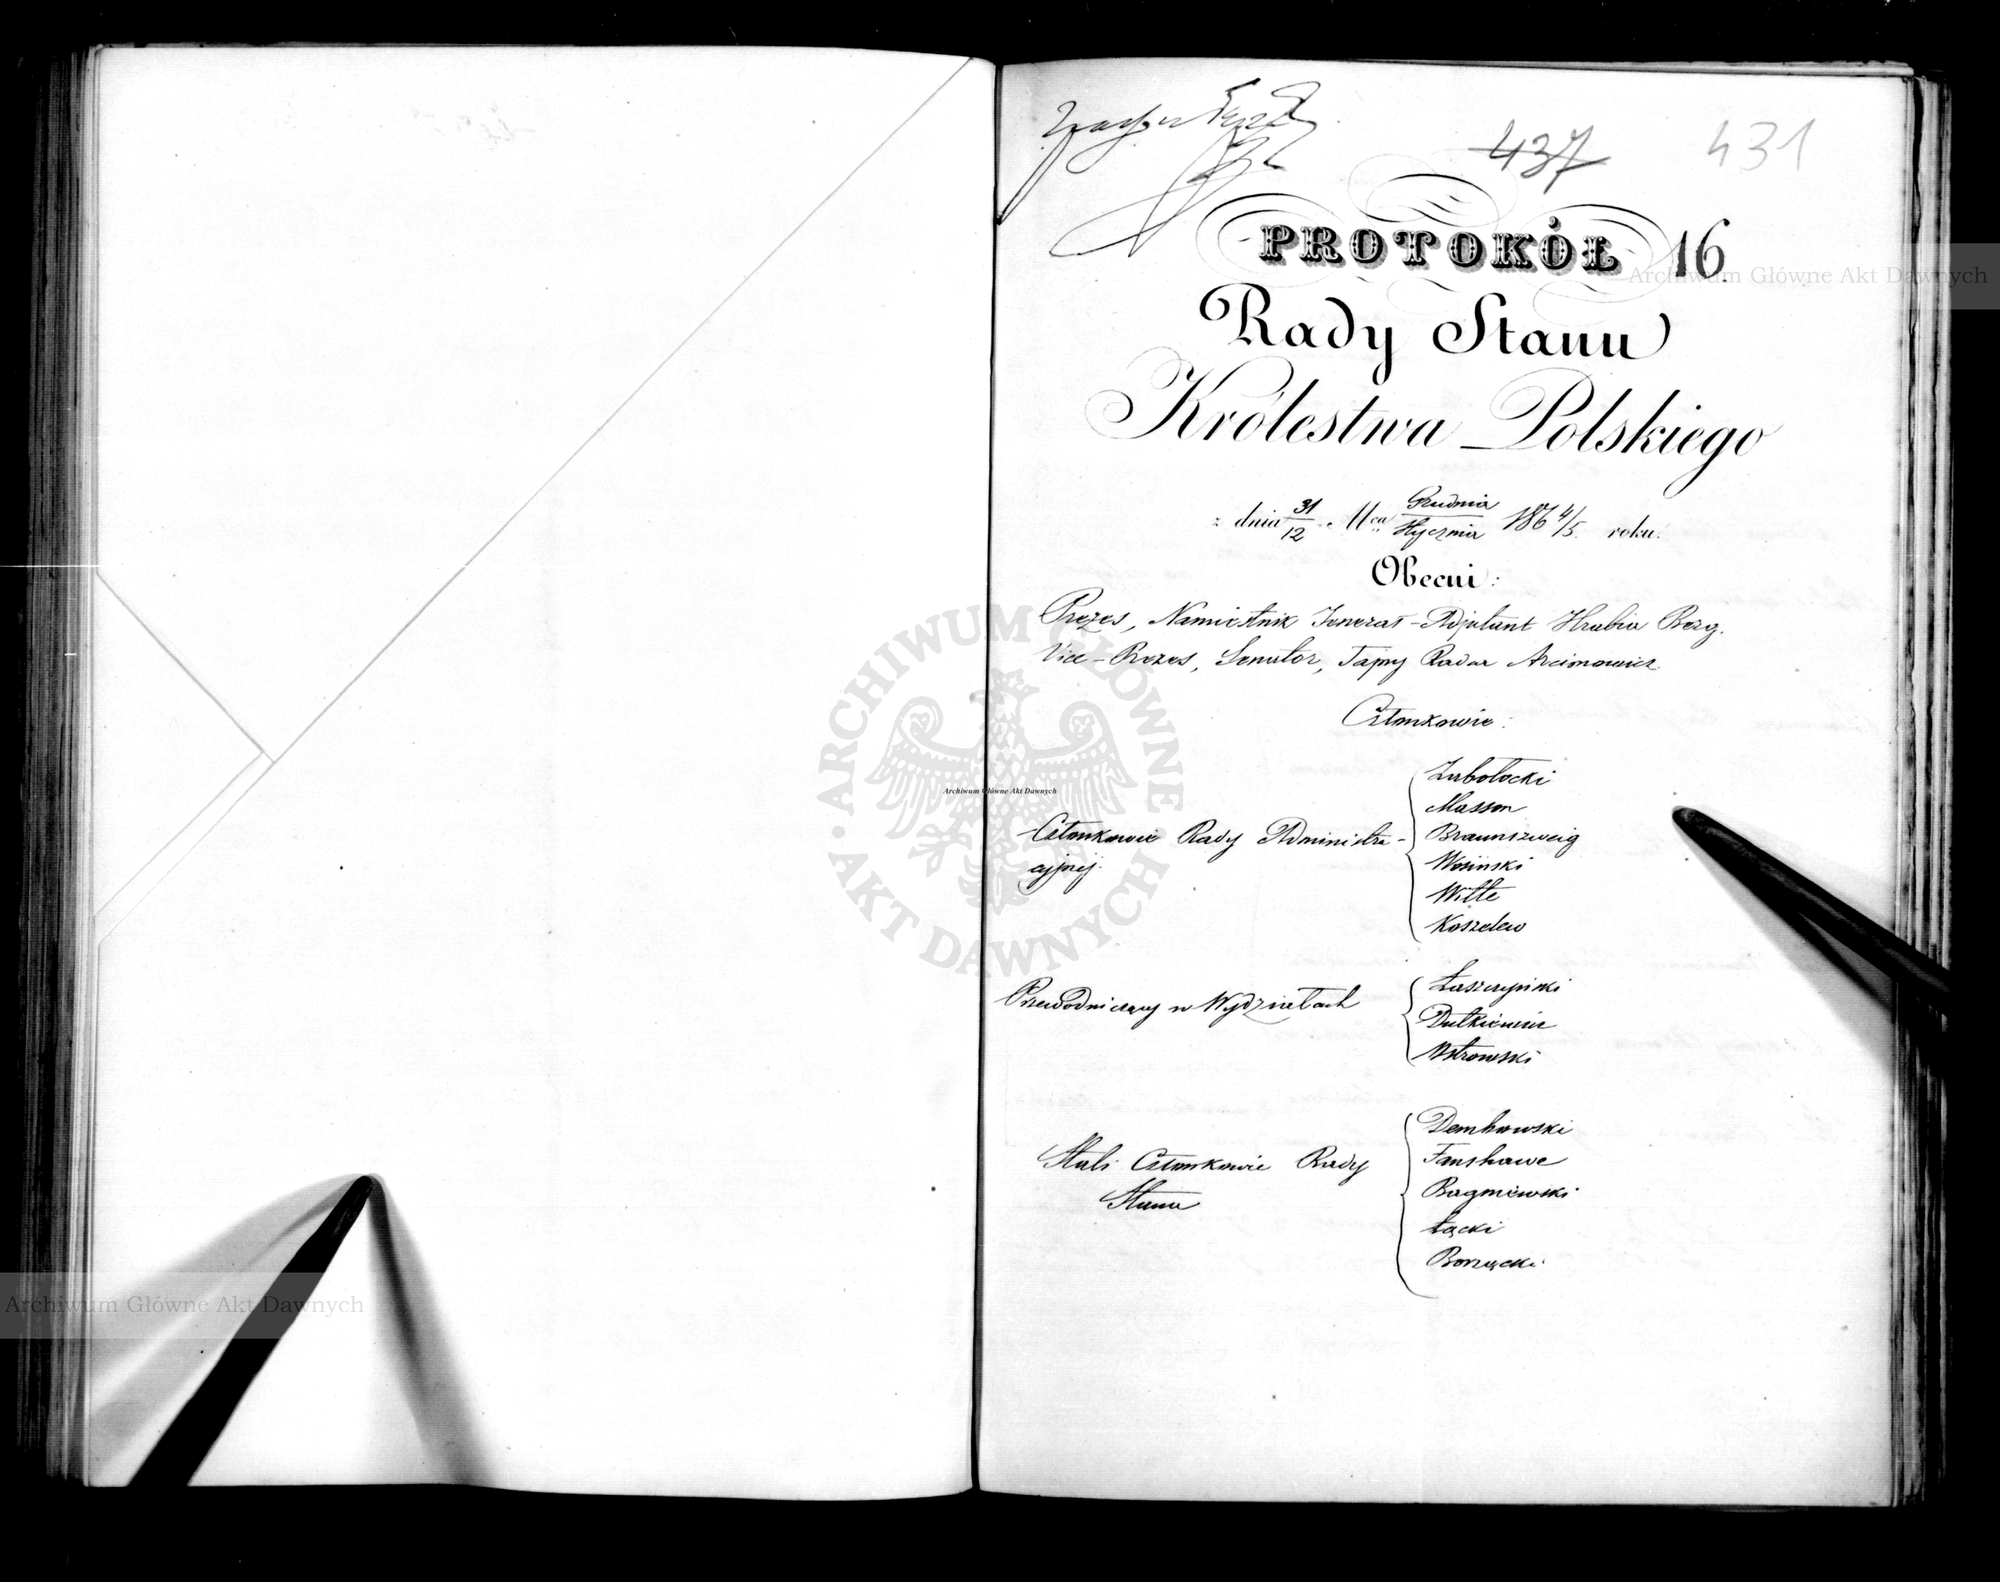 437 431
PROTOKÓŁ 16.
Rady Stanu
Królestwa Polskiego
z dnia 31/12 Mca Grudnia/Stycznia 1864/5. roku.
Obecni:
Prezes, Namiestnik Jenerał-Adjutant Hrabia Berg.
Vice-Prezes, Senator, Tajny Radca Arcimowicz
Członkowie:
Zabołocki
Masson
Członkowie Rady Administra- Braunszweig
cyjnej. Wosiński
Witte
Koszelew
Łaszczyński
Przewodniczący w Wydziałach Dutkiewicz
Ostrowski
Dembowski
Stali Członkowie Rady Fanshawe
Stanu Bagniewski
Łącki
Borzęcki
ARCHIWUM GŁÓWNE AKT DAWNYCH
Archiwum Główne Akt Dawnych
Archiwum Główne Akt Dawnych
Archiwum Główne Akt Dawnych